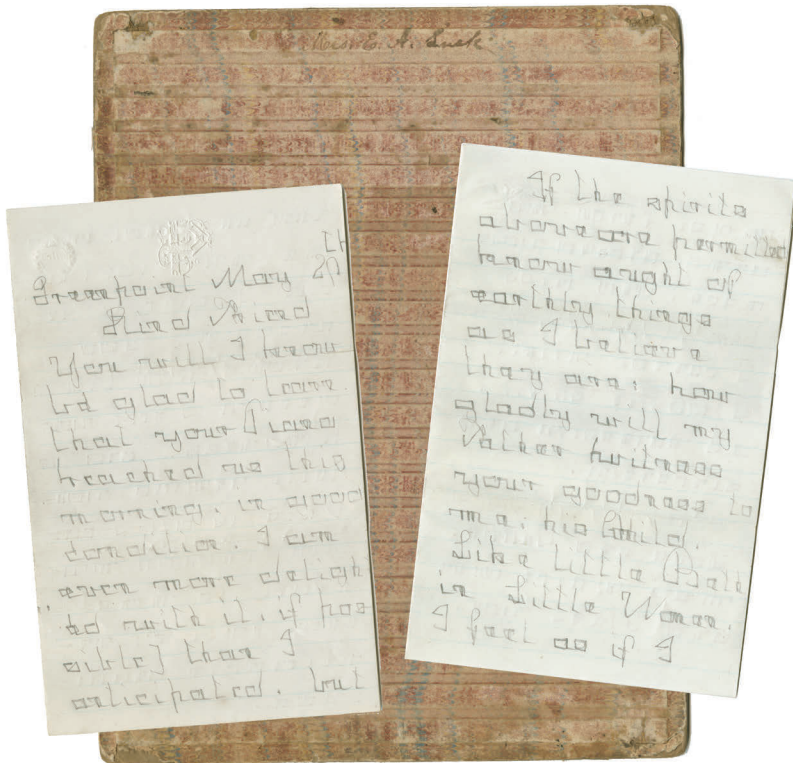 Miss E. A. Luck
th
Greenpoint May 29
Kind Friend
You will I know
be glad to learn
that your Piano
reached us this
morning. in good
condition. I am
even more deligh
ted with it, if pos
sible] than I
anticipated. but
If the spirits
above are permitted
know aught of
earthly things
as I believe
they are: how
gladly will my
Father witness
your goodness to
me. his Child.
Like little Beth
in Little Women.
I feel as if I